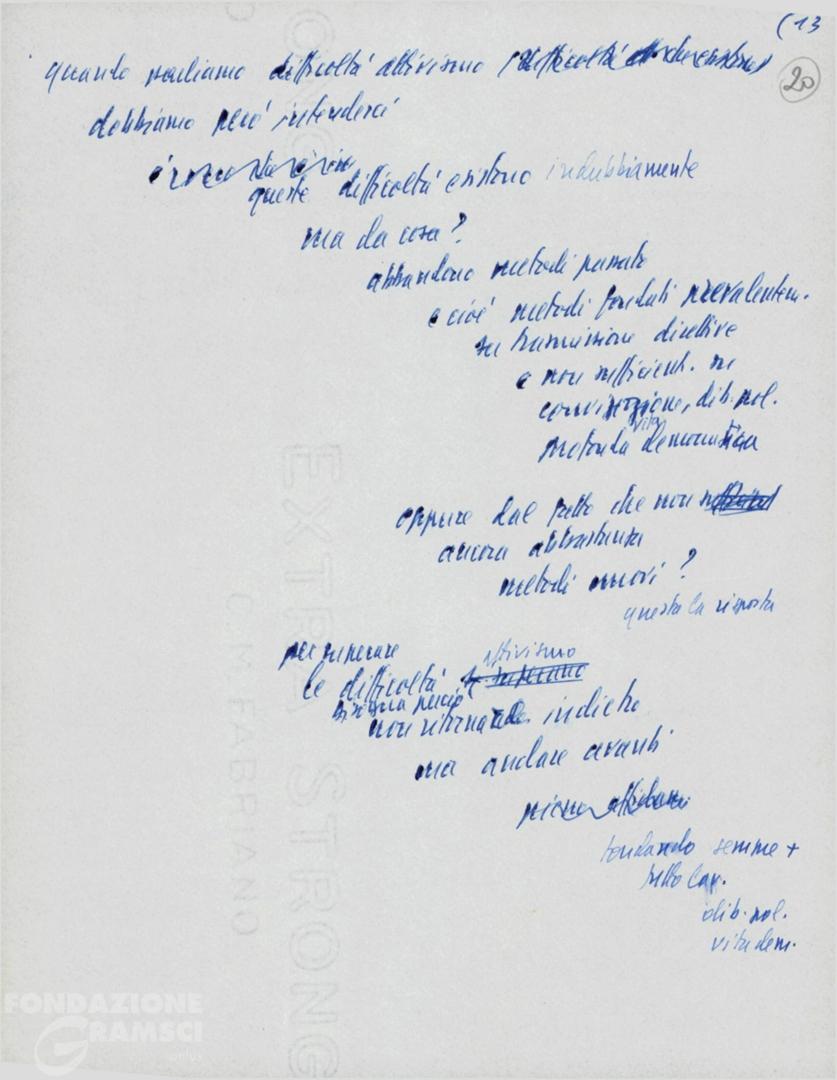 (13
20
quando parliamo difficoltà attivismo
dobbiamo però intenderci
queste difficoltà esistono indubbiamente
ma da cosa?
abbandono metodi passato
e cioè metodi fondati prevalentem.
su trasmissione direttive
e non sufficient. su
convinzione, dib. pol.
profonda vita democratica
oppure dal fatto che non
ancora abbastanza
metodi nuovi?
questa la risposta
per superare
le difficoltà attivismo
bisogna perciò
non ritornare indietro
ma andare avanti
fondando sempre +
sullo lav.
dib. pol.
vita dem.
EXTRA STRONG
C.M. FABRIANO
FONDAZIONE
GRAMSCI
onlus